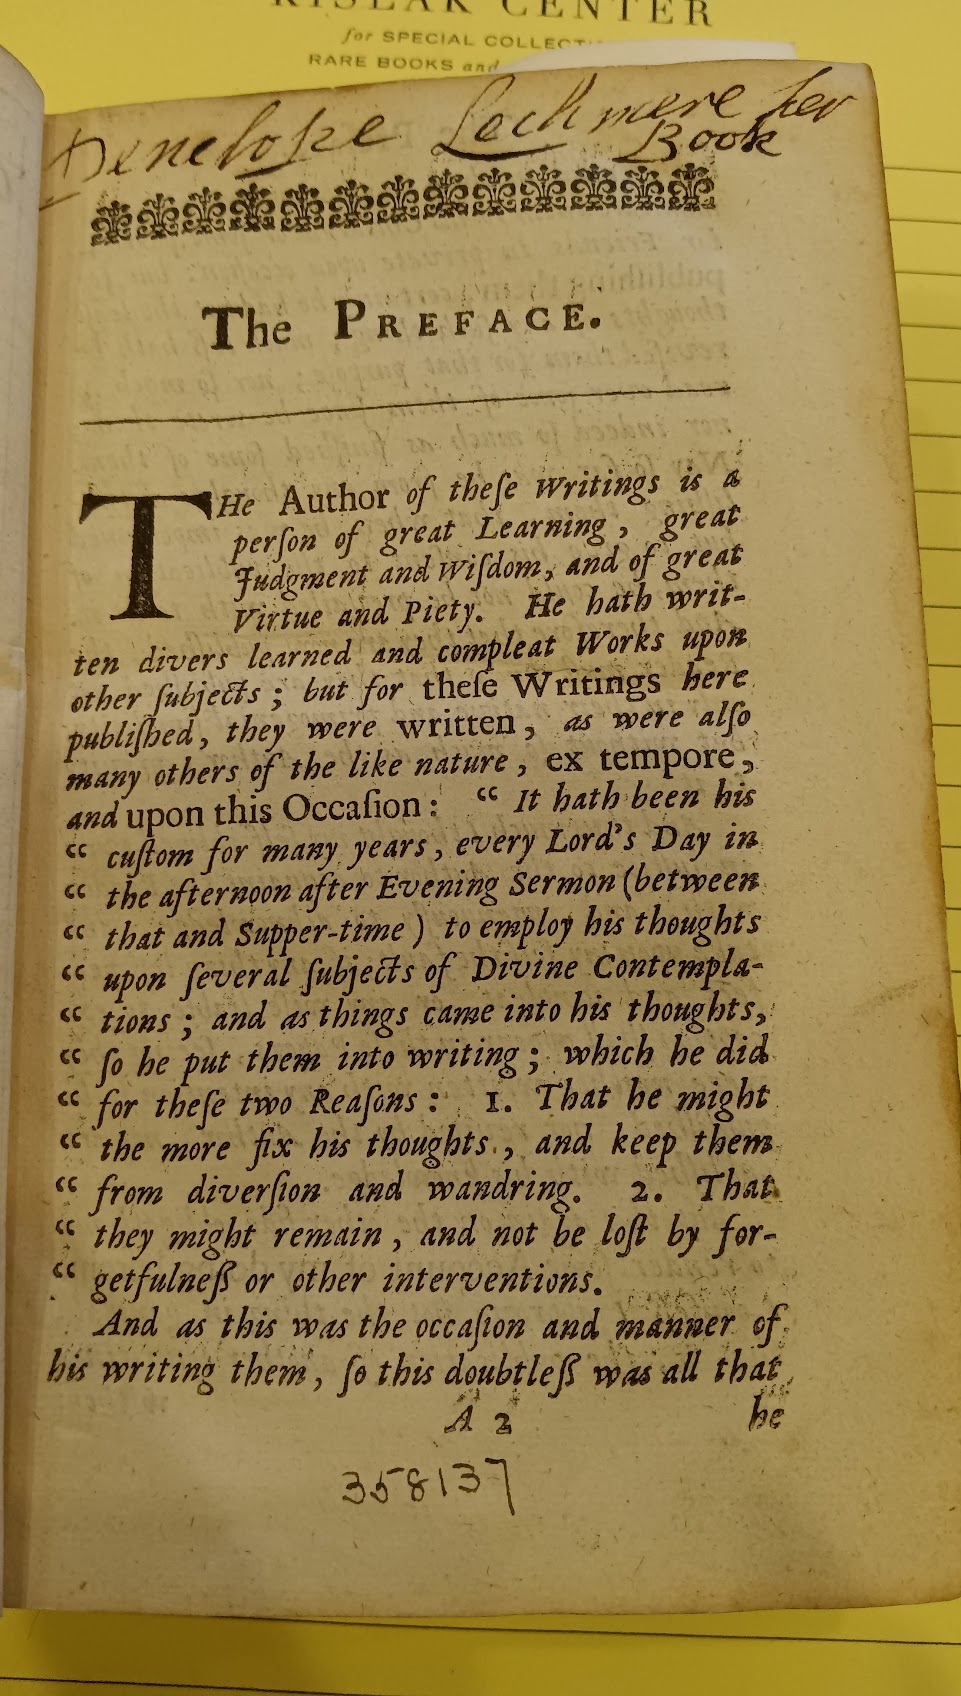 KISLAK CENTER
for SPECIAL COLLECTI
RARE BOOKS and
Penelope Lechmere her
Book
The PREFACE.
THe Author of theſe Writings is a
perſon of great Learning, great
Judgment and Wiſdom, and of great
Virtue and Piety. He hath writ-
ten divers learned and compleat Works upon
other ſubjects; but for theſe Writings here
publiſhed, they were written, as were alſo
many others of the like nature, ex tempore,
and upon this Occaſion: “ It hath been his
“ cuſtom for many years, every Lord's Day in
“ the afternoon after Evening Sermon (between
“ that and Supper-time) to employ his thoughts
“ upon ſeveral ſubjects of Divine Contempla-
“ tions; and as things came into his thoughts,
“ ſo he put them into writing; which he did
“ for theſe two Reaſons: 1. That he might
“ the more fix his thoughts, and keep them
“ from diverſion and wandring. 2. That
“ they might remain, and not be loſt by for-
“ getfulneß or other interventions.
And as this was the occaſion and manner of
his writing them, ſo this doubtleß was all that
A 2 he
358137